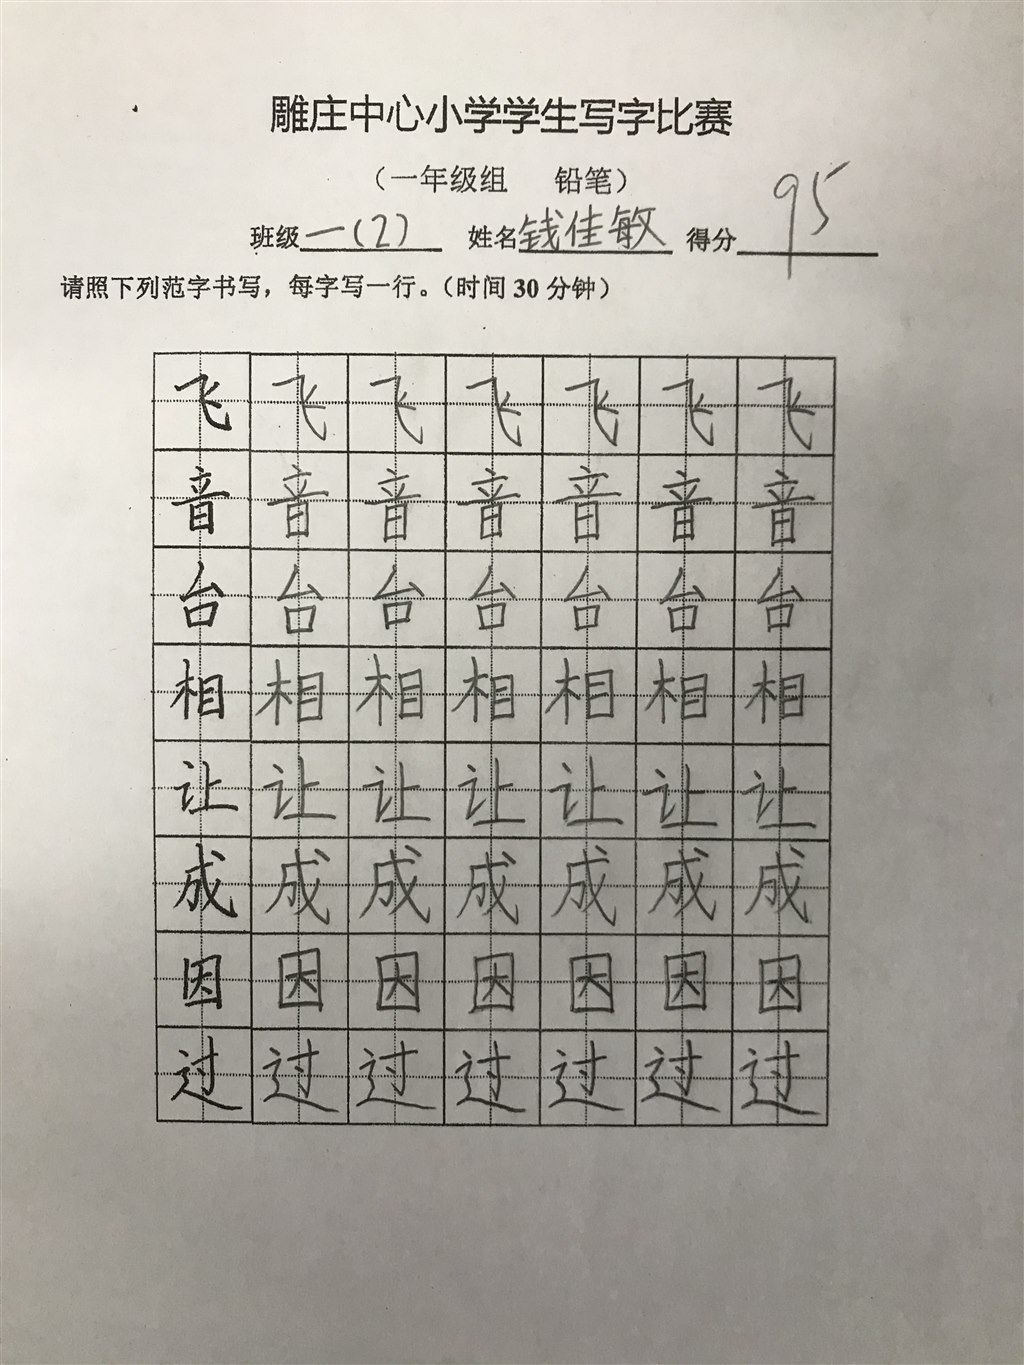 雕庄中心小学学生写字比赛
（一年级组 铅笔）
班级一(2) 姓名钱佳敏 得分95
请照下列范字书写，每字写一行。（时间30分钟）
飞飞飞飞飞飞飞
音音音音音音音
台台台台台台台
相相相相相相相
让让让让让让让
成成成成成成成
因因因因因因因
过过过过过过过